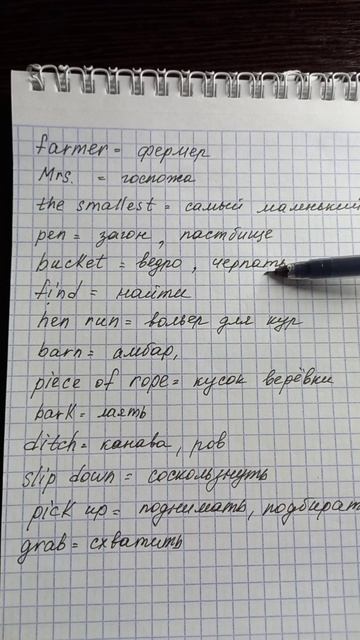 farmer = фермер
Mrs. = госпожа
the smallest = самый маленький
pen = загон, пастбище
bucket = ведро, черпать
find = найти
hen run = вольер для кур
barn = амбар,
piece of rope = кусок верёвки
bark = лаять
ditch = канава, ров
slip down = соскользнуть
pick up = поднимать, подбират
grab = схватить